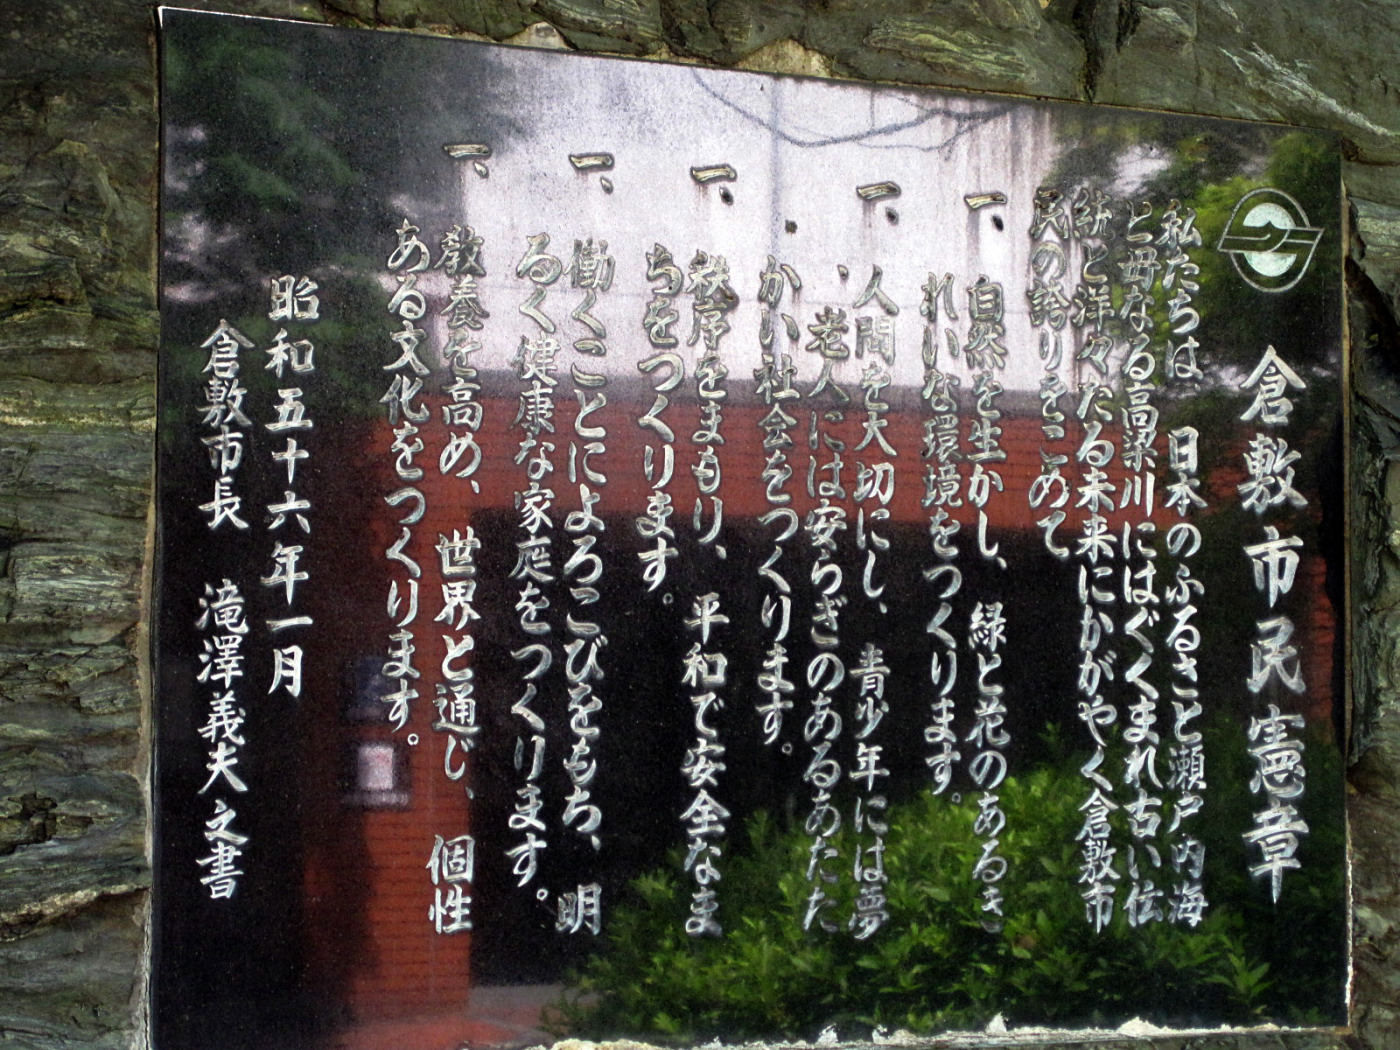 倉敷市民憲章
私たちは、日本のふるさと瀬戸内海
と母なる高梁川にはぐくまれ古い伝
統と洋々たる未来にかがやく倉敷市
民の誇りをこめて
一、自然を生かし、緑と花のあるき
れいな環境をつくります。
一、人間を大切にし、青少年には夢
、老人には安らぎのあるあたた
かい社会をつくります。
一、秩序をまもり、平和で安全なま
ちをつくります。
一、働くことによろこびをもち、明
るく健康な家庭をつくります。
一、教養を高め、世界と通じ、個性
ある文化をつくります。
昭和五十六年一月
倉敷市長 滝澤義夫之書